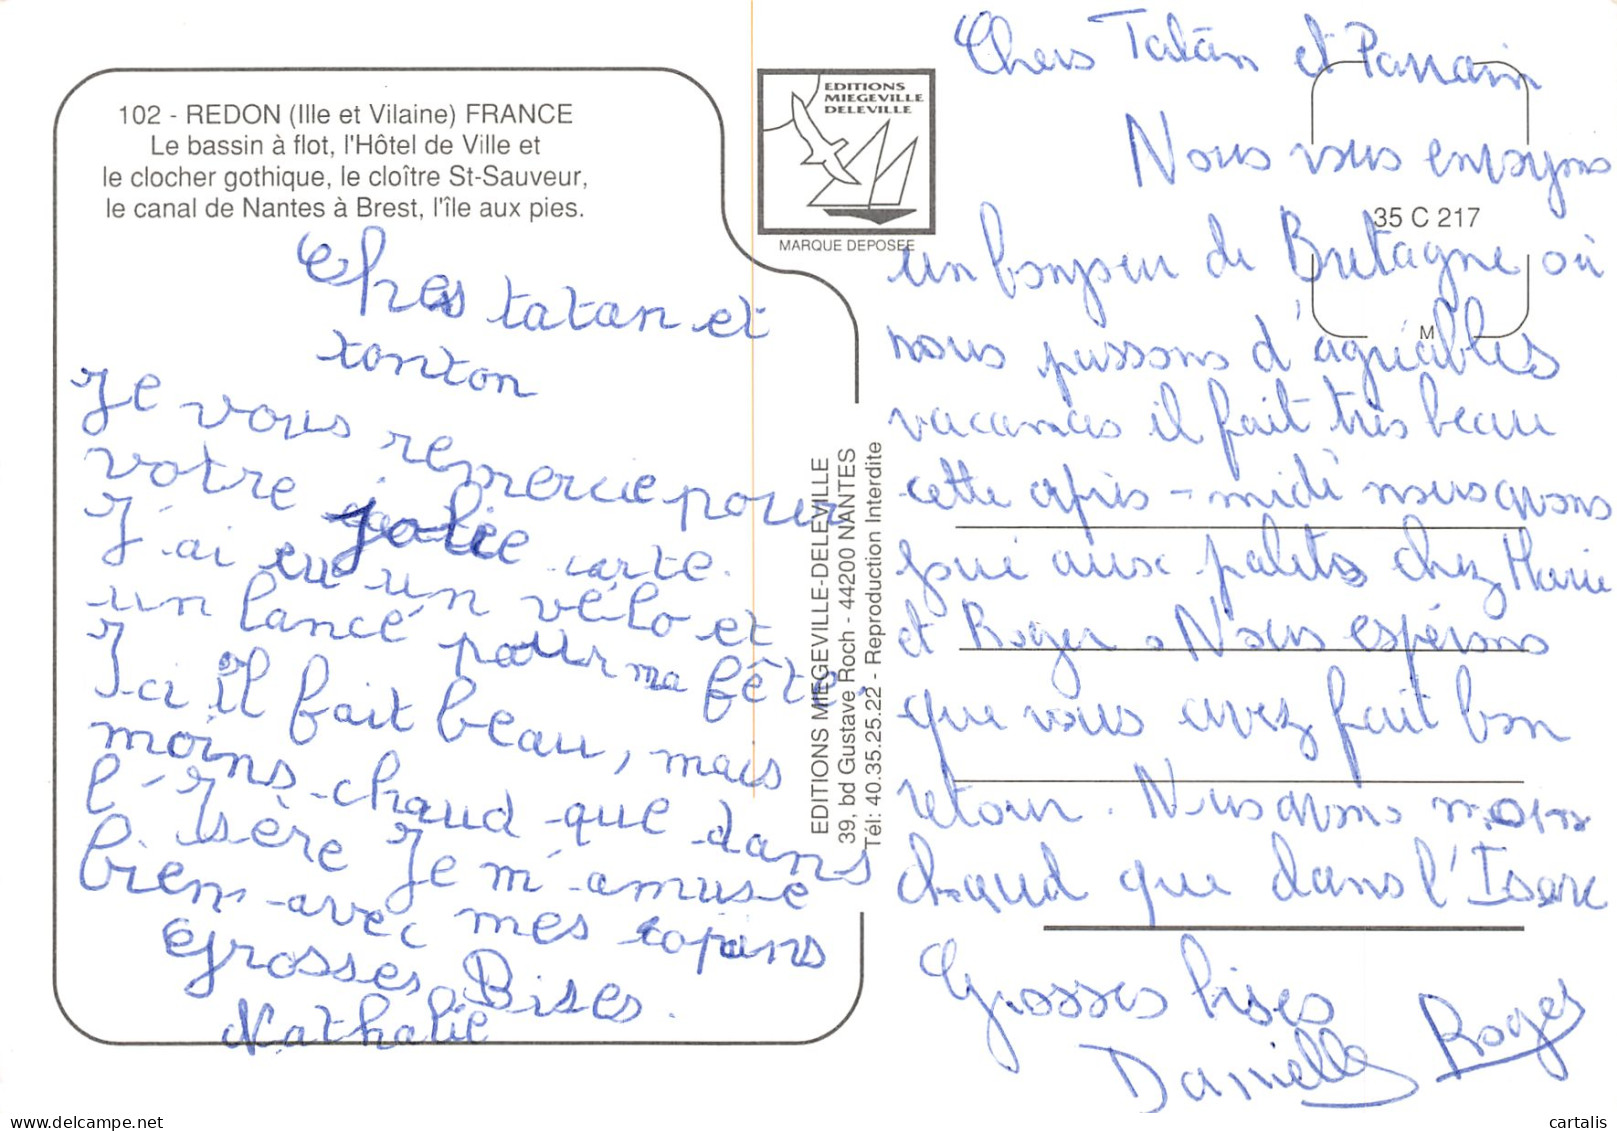 102 - REDON (Ille et Vilaine) FRANCE
Le bassin à flot, l'Hôtel de Ville et
le clocher gothique, le cloître St-Sauveur,
le canal de Nantes à Brest, l'île aux pies.
Chers tatan et
tonton
Je vous remercie pour
votre jolie carte.
J'ai eu un vélo et
un lancé pour ma fête.
Ici il fait beau, mais
moins chaud que dans
l'Isère Je m'amuse
bien avec mes copains
Grosses Bises.
Nathalie
EDITIONS
MIEGEVILLE
DELEVILLE
MARQUE DEPOSEE
EDITIONS MIEGEVILLE-DELEVILLE
39, bd Gustave Roch - 44200 NANTES
Tél: 40.35.25.22 - Reproduction Interdite
35 C 217
M
Chers Tatan et Parrain
Nous vous envoyons
un bonjour de Bretagne où
nous passons d'agréables
vacances il fait très beau
cette après-midi nous avons
joué aux palets chez Marie
et Roger. Nous espérons
que vous avez fait bon
retour. Nous avons moin
chaud que dans l'Isere
Grosses bises
Danielle Roger
cartalis